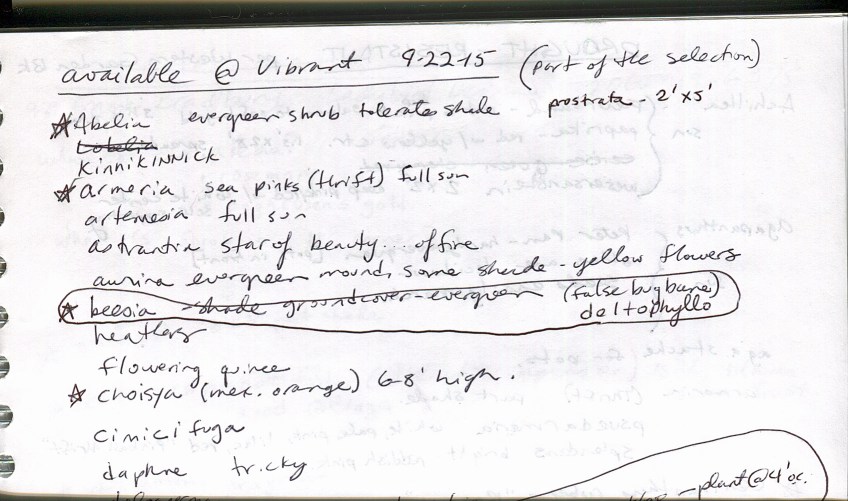 available @ Vibrant 9-22-15 (part of the selection)
Abelia evergreen shrub tolerates shade prostrata - 2' x 5'
Lobelia
KINNIKINNICK
armeria sea pinks (thrift) full sun
artemesia full sun
astrantia star of beauty... of fire
aurina evergreen mound, some shade - yellow flowers
beesia - shade groundcover - evergreen (false bugbane)
deltophyllo
heathers
flowering quince
choisya (mex. orange) 6-8' high.
cimicifuga
daphne tricky
- plant @ 4' oc.